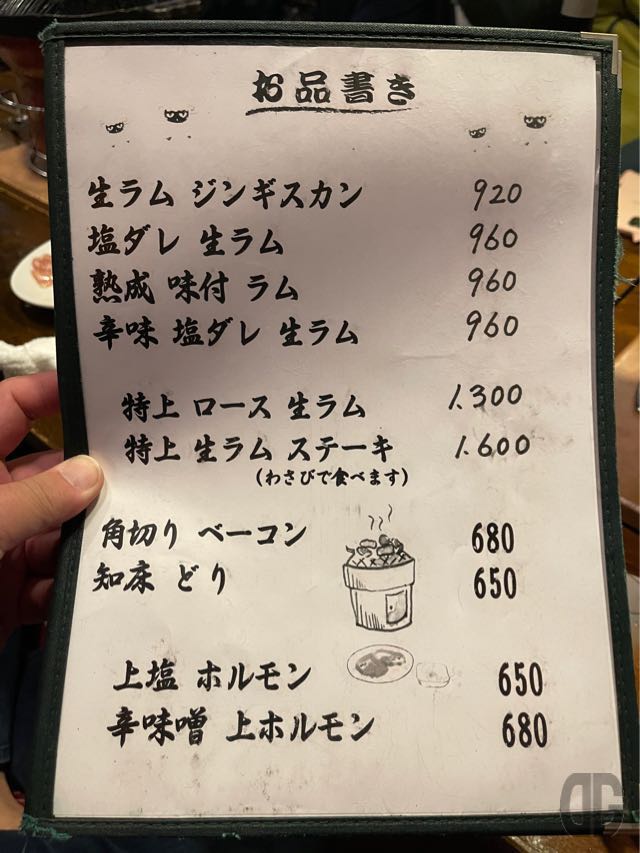 お品書き
生ラム ジンギスカン 920
塩ダレ 生ラム 960
熟成 味付 ラム 960
辛味 塩ダレ 生ラム 960
特上 ロース 生ラム 1.300
特上 生ラム ステーキ 1.600
(わさびで食べます)
角切り ベーコン 680
知床 どり 650
上塩 ホルモン 650
辛味噌 上ホルモン 680